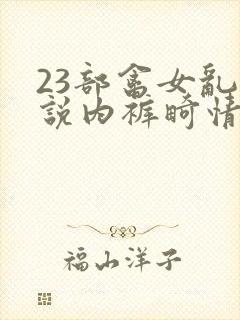 23部畜女乱
說内裤畸情
福山洋子